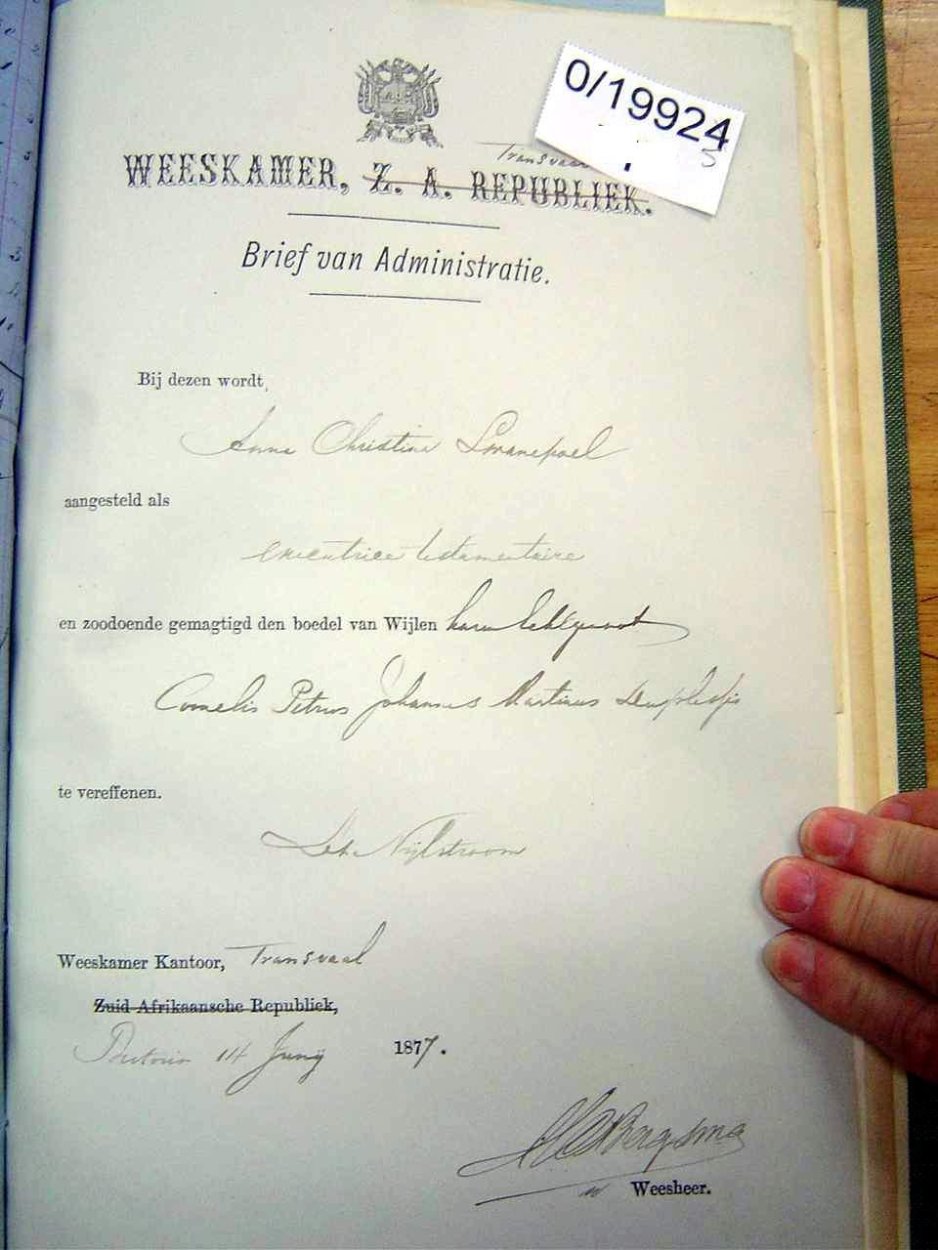 0/19924
3
Transvaal
WEESKAMER, Z. A. REPUBLIEK.
Brief van Administratie.
Bij dezen wordt
Anna Christina Swanepoel
aangesteld als
executrice testamentaire
en zoodoende gemagtigd den boedel van Wijlen haren echtgenoot
Cornelis Petrus Johannes Martinus
te vereffenen.
Nijlstroom
Weeskamer Kantoor, Transvaal
Zuid Afrikaansche Republiek,
Pretoria 14 Junij 1877.
Bergsma
Weesheer.